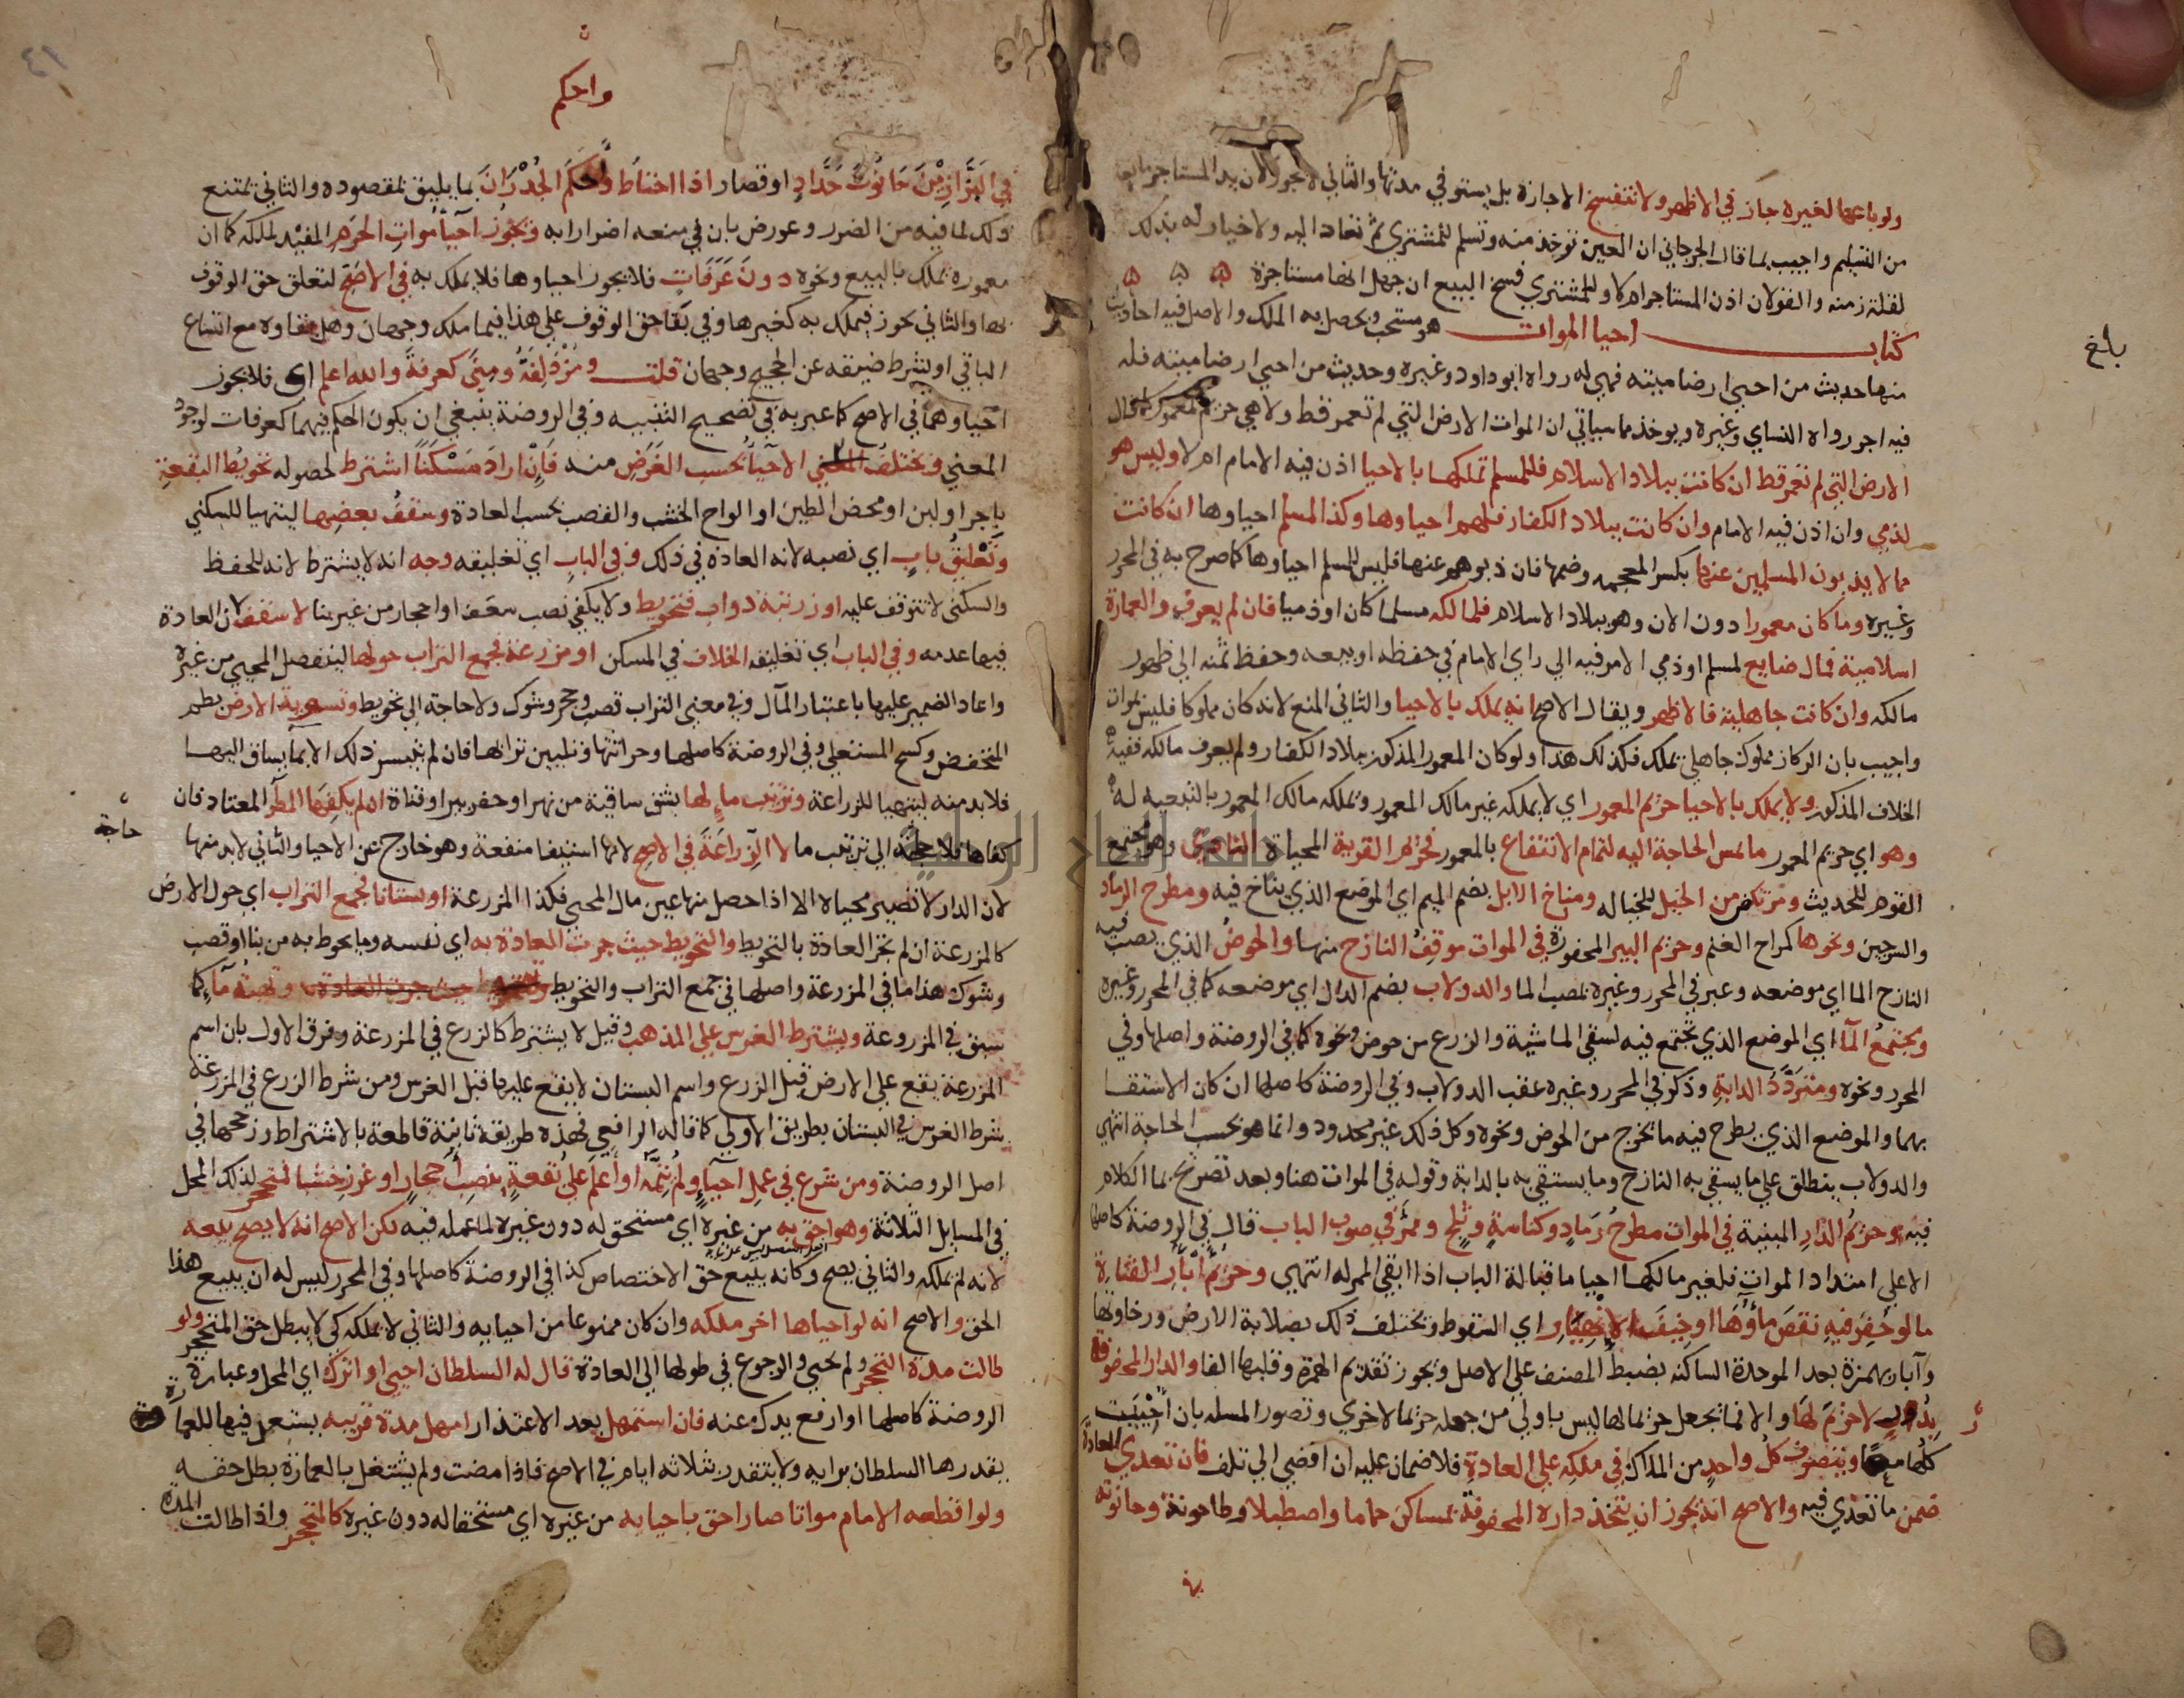 ولو باعها لغيره جاز في الاظهر ولا تنفسخ الاجارة بل يستوفي مدتها والثاني لا يجوز لان يد المستاجر مانعة
من التسليم واجيب بما قال الجرجاني ان العين توخذ منه وتسلم للمشتري ثم تعاد اليه ولا خيار له بذلك
لقلة زمنه والقولان اذن المستاجر ام لا وللمشتري فسخ البيع ان جهل انها مستاجرة ه ه ه
كتاب احيا الموات هو مستحب ويحصل به الملك والاصل فيه احاديث
منها حديث من احيى ارضا ميتة فهي له رواه ابو داود وغيره وحديث من احيى ارضا ميتة فله
فيه اجر رواه النساي وغيره ويوخذ مما سياتي ان الموات الارض التي لم تعمر قط ولا هي حريم لمعمور قال
الارض التي لم تعمر قط ان كانت ببلاد الاسلام فللمسلم تملكها بالاحيا اذن فيه الامام ام لا وليس هو
لذمي وان اذن فيه الامام وان كانت ببلاد الكفار فلهم احياوها وكذا المسلم احياوها ان كانت
مما لا يذبون المسلمين عنها بكسر المعجمة وضمها فان ذبوهم عنها فليس للمسلم احياوها كما صرح به في المحرر
وغيره وما كان معمورا دون الان وهو ببلاد الاسلام فلمالكه مسلما كان او ذميا فان لم يعرف والعمارة
اسلامية فمال ضايع لمسلم او ذمي الامر فيه الي راي الامام في حفظه او بيعه وحفظ ثمنه الي ظهور
مالكه وان كانت جاهلية فالاظهر ويقال الاصح انه يملك بالاحيا والثاني المنع لانه كان مملوكا فليس بموات
واجيب بان الركاز مملوك جاهلي يملك فكذلك هذا ولو كان المعمور المذكور ببلاد الكفار ولم يعرف مالكه ففيه
الخلاف المذكور ولا يملك بالاحيا حريم المعمور اي لا يملكه غير مالك المعمور ويملكه مالك المعمور بالتبعية له
وهو اي حريم المعمور ما تمس الحاجة اليه لتمام الانتفاع بالمعمور فحريم القرية المحياة النادي وهو مجتمع
القوم للحديث ومرتكض من الخيل للخيالة ومناخ الابل بضم الميم اي الموضع الذي يناخ فيه ومطرح الرماد
والسرجين ونحوها كمراح الغنم وحريم البير المحفورة في الموات موقف النازح منها والحوض الذي يصب فيه
النازح الما اي موضعه وعبر في المحرر وغيره بمصب الما والدولاب بضم الدال اي موضعه كما في المحرر وغيره
ومجتمع الما اي الموضع الذي تجتمع فيه لسقي الماشية والزرع من حوض ونحوه كما في الروضة واصلها وفي
المحرر ونحوه ومتردد الدابة وذكر في المحرر وغيره عقب الدولاب وفي الروضة كاصلها ان كان الاستقا
بهما والموضع الذي يطرح فيه ما يخرج من الحوض ونحوه وكل ذلك غير محدود وانما هو بحسب الحاجة انتهي
والدولاب ينطلق علي ما يسقي به النازح وما يستقي به بالدابة وقوله في الموات هنا وبعد تصريح بما الكلام
فيه وحريم الدار المبنية في الموات مطرح رماد وكناسة وثلج وممر في صوب الباب قال في الروضة كاصلها
الاعلي امتداد الموات فلغير مالكها احيا ما قبالة الباب اذا ابقي الممر له انتهي وحريم آبار القناة
ما لو حفر فيه نقص ماوها او خيف الانهيار اي السقوط ويختلف ذلك بصلابة الارض ورخاوتها
وآبار بهمزة بعد الموحدة الساكنة بضبط المصنف علي الاصل ويجوز تقديم الهمزة وقلبها الفا والدار المحفوفة
بدور لا حريم لها والا فما يجعل حريما لها ليس باولي من جعله حريما لاخري وتصور المسلة بان احييت
كلها معا ويتصرف كل واحد من الملاك في ملكه علي العادة فلا ضمان عليه ان افضي الي تلف فان تعدي العادة
ضمن ما تعدي فيه والاصح انه يجوز ان يتخذ داره المحفوفة بمساكن حماما واصطبلا وطاحونة وحانوته
بلغ
في البزازين حانوت حداد او قصار اذا احتاط واحكم الجدران بما يليق بمقصوده والثاني يمتنع
ذلك لما فيه من الضرر وعورض بان في منعه اضرارا به ويجوز احيا موات الحرم المفيد لملكه كما ان
معموره يملك بالبيع ونحوه دون عرفات فلا يجوز احياوها فلا يملك به في الاصح لتعلق حق الوقوف
بها والثاني يجوز فيملك به كغيرها وفي بقا حق الوقوف علي هذا فيما ملك وجهان وهل بقاوه مع اتساع
الباقي او بشرط ضيقه عن الحجيج وجهان قلت ومزدلفة ومنى كعرفة والله اعلم اي فلا يجوز
احياوهما في الاصح كما عبر به في تصحيح التنبيه وفي الروضة ينبغي ان يكون الحكم فيهما كعرفات لوجود
المعني ويختلف الاحيا بحسب الغرض منه فان اراد مسكنا اشترط لحصوله تحويط البقعة
باجر او لبن او محض الطين او الواح الخشب والقصب بحسب العادة وسقف بعضها ليتهيا للسكني
وتعليق باب اي نصبه لانه العادة في ذلك وفي الباب اي تعليقه وجه انه لا يشترط لانه للحفظ
والسكنى لا تتوقف عليه او زريبة دواب فتحويط ولا يكفي نصب سعف او احجار من غير بنا لا سقف لان العادة
فيها عدمه وفي الباب اي تعليقه الخلاف في المسكن او مزرعة فجمع التراب حولها لينفصل المحيى من غيره
واعاد الضمير عليها باعتبار المآل وفي معني التراب قصب وحجر وشوك ولا حاجة الي تحويط وتسوية الارض بطم
المنخفض وكسح المستعلي وفي الروضة كاصلها وحراثتها وتليين ترابها فان لم يتيسر ذلك الا بما يساق اليها
فلا بد منه لتتهيا للزراعة وترتيب ماء لها بشق ساقية من نهر او حفر بير او قناة ان لم يكفها المطر المعتاد فان
كفاها فلا حاجة الي ترتيب ما لا الزراعة في الاصح لانها استيفا منفعة وهو خارج عن الاحيا والثاني لا بد منها
لان الدار لا تصير محياة الا اذا حصل منها عين مال المحيي فكذا المزرعة او بستانا فجمع التراب اي حول الارض
كالمزرعة ان لم تجر العادة بالتحويط والتحويط حيث جرت العادة به اي نفسه وما يحوط به من بنا او قصب
وشوك هذا ما في المزرعة واصلها في جمع التراب والتحويط وتهيئة ماء كما
سبق في المزروعة ويشترط الغرس علي المذهب وقيل لا يشترط كالزرع في المزرعة وفرق الاول بان اسم
المزرعة يقع علي الارض قبل الزرع واسم البستان لا يقع عليها قبل الغرس ومن شرط الزرع في المزرعة
شرط الغرس في البستان بطريق الاولي كما قاله الرافعي فهذه طريقة ثانية قاطعة بالاشتراط رجحها في
اصل الروضة ومن شرع في عمل احياء ولم يتمه او اعلم علي بقعة بنصب احجار او غرز خشبا فمتحجر لذلك المحل
في المسايل الثلاثة وهو احق به من غيره اي مستحق له دون غيره لما عمله فيه لكن الاصح انه لا يصح بيعه
لانه لم يملكه والثاني يصح وكانه يبيع حق الاختصاص كذا في الروضة كاصلها وفي المحرر ليس له ان يبيع هذا
الحق والاصح انه لو احياها اخر ملكه وان كان ممنوعا من احيايه والثاني لا يملكه كي لا يبطل حق المتحجر ولو
طالت مدة التحجر ولم يحيي والرجوع في طولها الي العادة قال له السلطان احيي او اترك اي المحل وعبارة
الروضة كاصلها او ارفع يدك عنه فان استمهل بعد الاعتذار امهل مدة قريبة يستعد فيها للعمارة
يقدرها السلطان برايه ولا يتقدر بثلاثة ايام في الاصح فاذا مضت ولم يشتغل بالعمارة بطل حقه
ولو اقطعه الامام مواتا صار احق باحيايه من غيره اي مستحقا له دون غيره كالمتحجر واذا طالت المدة
واحكم
حاجة